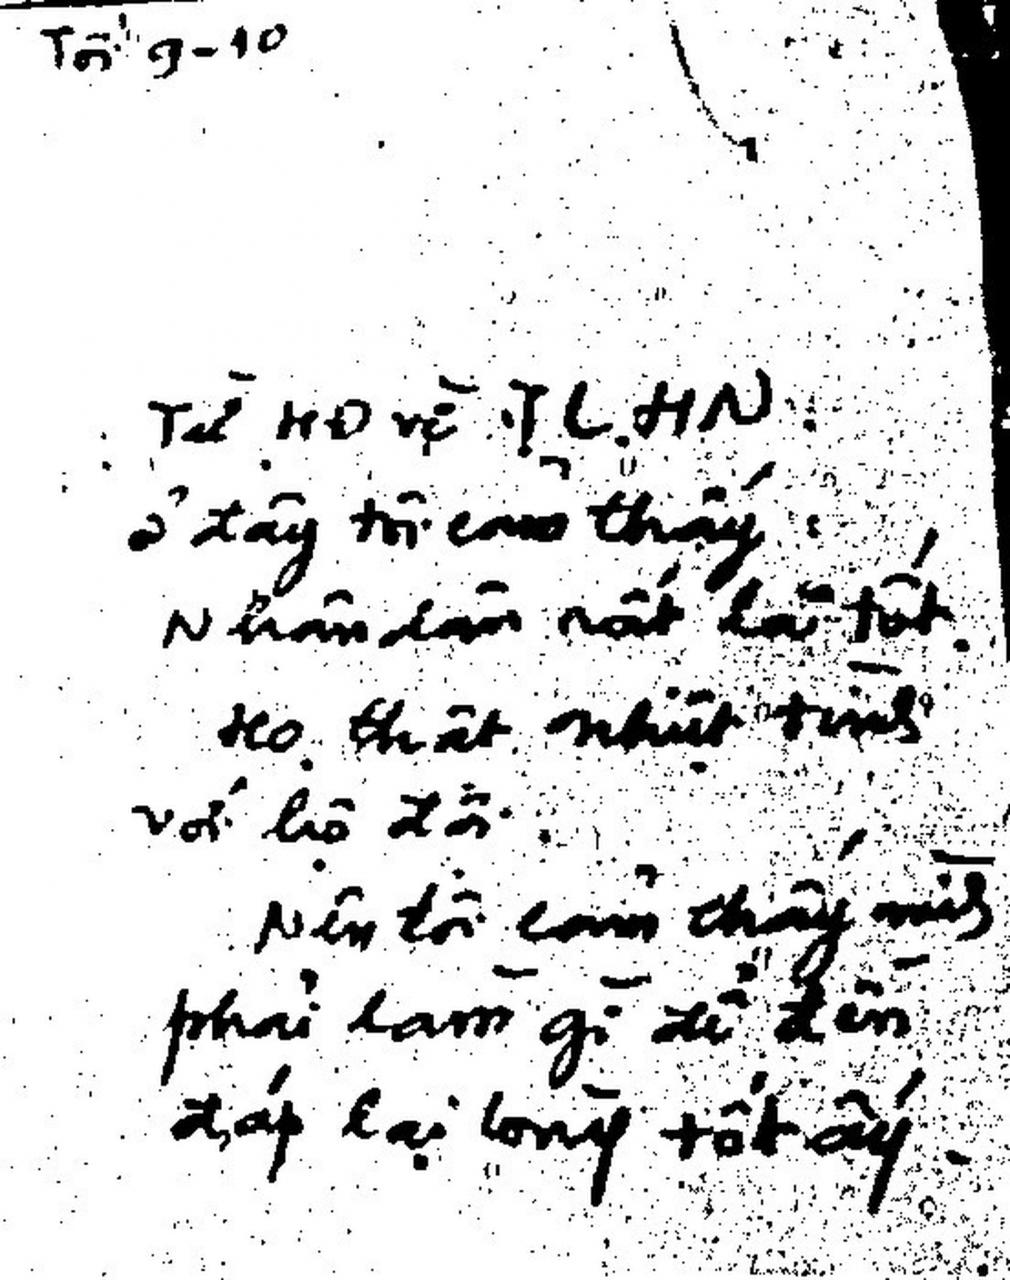 Tối 9-10
Từ HĐ về TL HN
ở đây tôi cảm thấy :
Nhân dân rất là tốt.
Họ thật nhiệt tình
với bộ đội.
Nên tôi cảm thấy mình
phải làm gì để đền
đáp lại lòng tốt ấy.